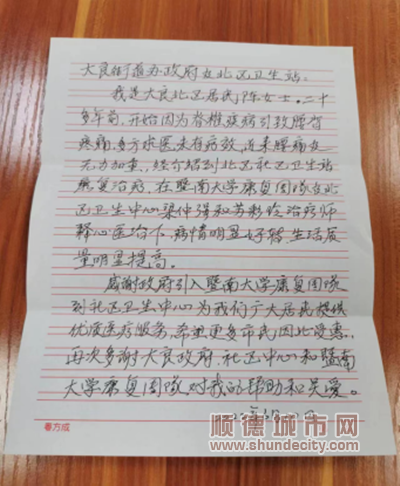 大良街道办政府及北区卫生站：
我是大良北区居民陈女士。二十
多年前，开始因为脊椎疾病引致腰背
疼痛，多方求医未有疗效，近来腰痛及
无力加重，经介绍到北区社区卫生站
康复治疗，在暨南大学康复团队在北
区卫生中心梁仲强和苏彩玲治疗师
释心医治下，病情明显好转，生活质
量明显提高。
感谢政府引入暨南大学康复团队
到社区卫生中心为我们广大居民提供
优质医疗服务，希望更多市民因此受惠，
再次多谢大良政府、社区中心和暨南
大学康复团队对我的帮助和关爱。
年 月 日
春方成
顺德城市网
www.shundecity.com